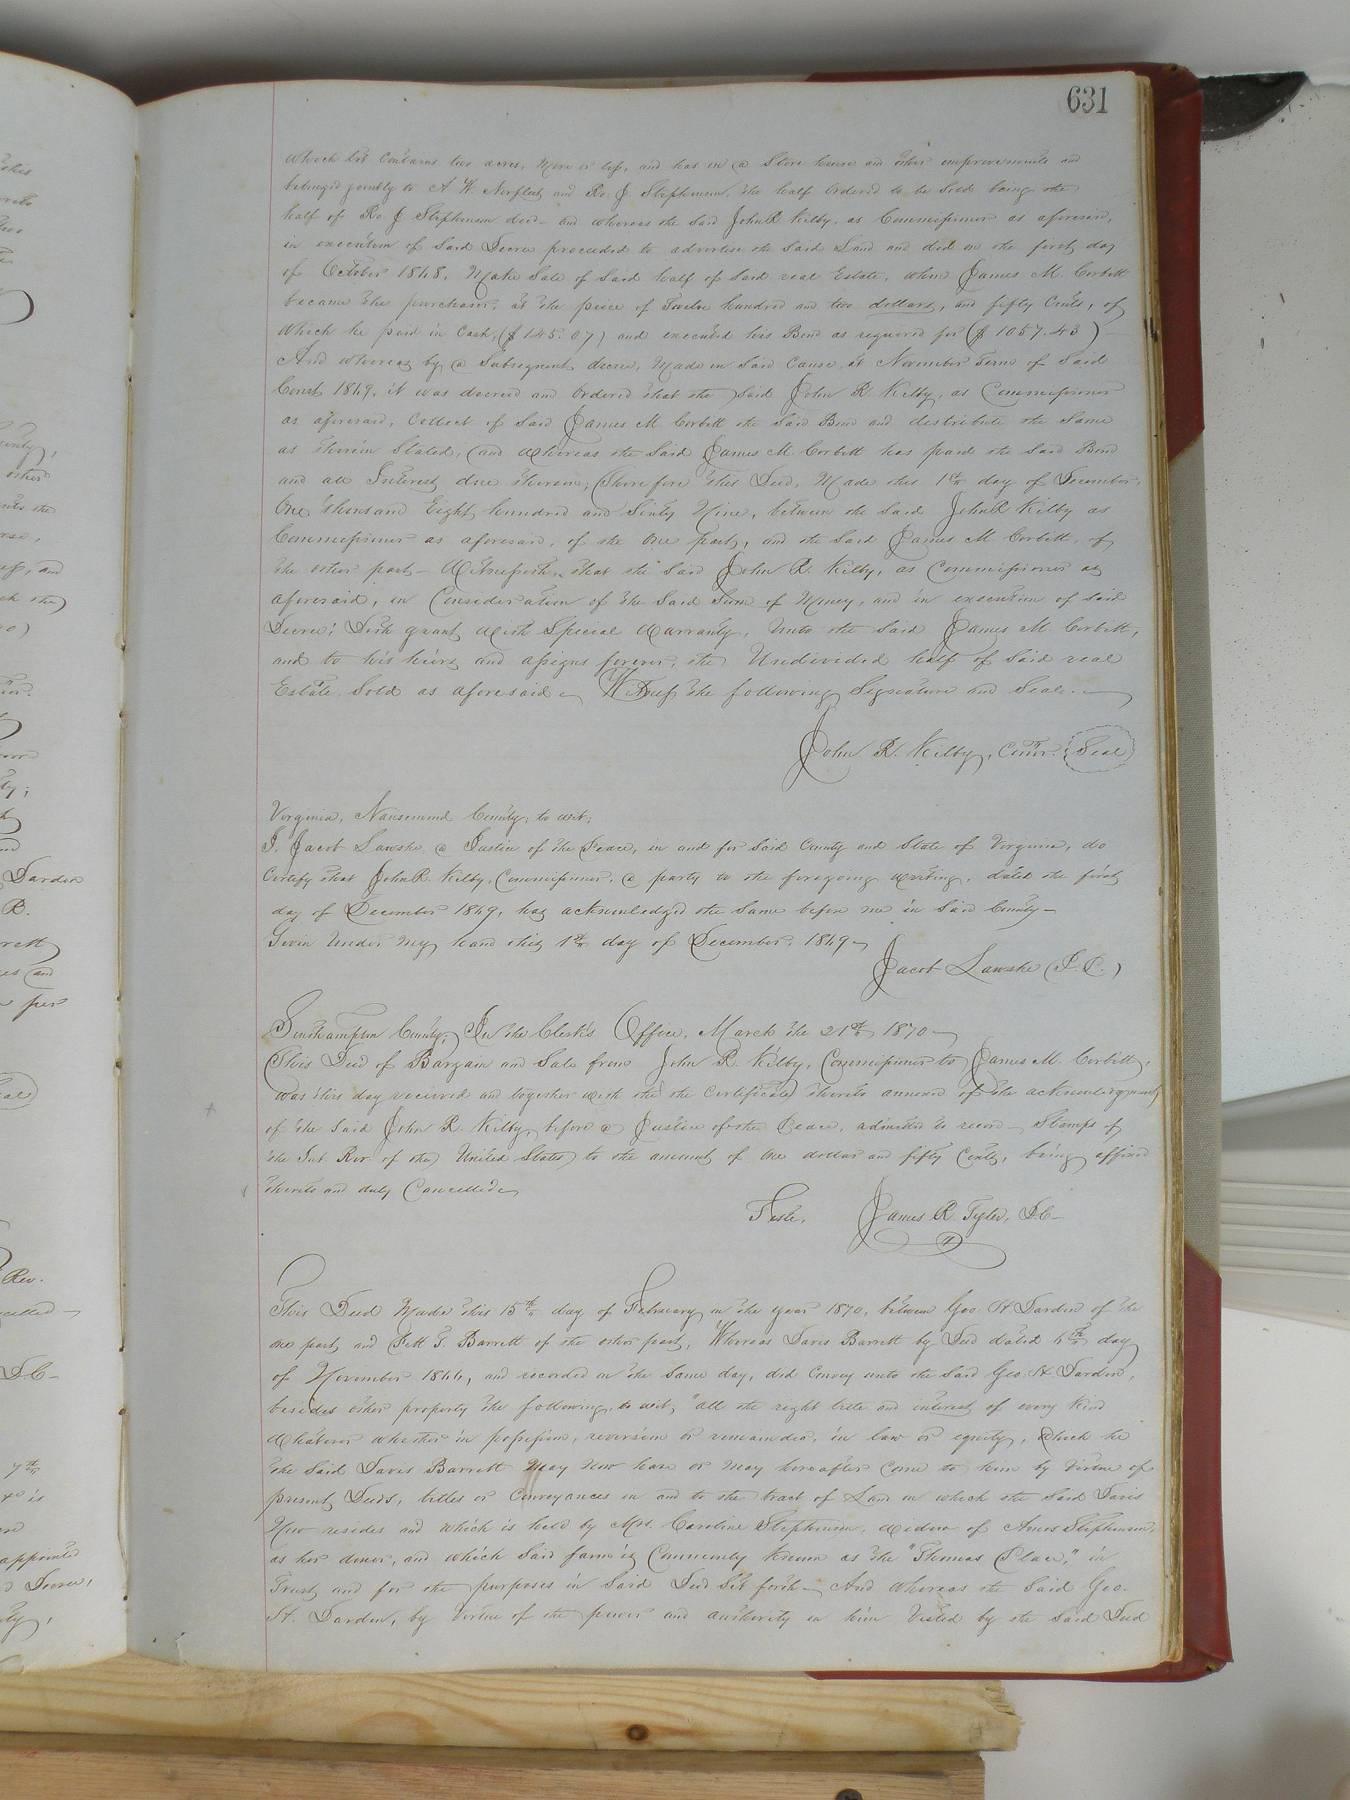 631
which lot contains two acres, more or less, and has on a Store house and other improvements and
belonged jointly to A. W. Norfleet and Ro. J Stephenson, the half ordered to be sold being the
half of Ro. J Stephenson dec'd - and whereas the said John R Kilby, as Commissioner as aforesaid,
in execution of said Decree proceeded to advertise the said Land and did on the first day
of October 1868, Make Sale of said half of said real Estate, when James M. Corbett
became the purchaser, at the price of Twelve hundred and two dollars, and fifty Cents, of
which he paid in Cash, ($ 145.07) and executed his Bond as required for ($ 1057.43)
And whereas by a Subsequent decree, Made in Said Cause at November Term of Said
Court 1869, it was decreed and ordered that the said John R. Kilby, as Commissioner
as aforesaid, Collect of Said James M Corbett the Said Bond and distribute the Same
as therein Stated, and whereas the Said James M. Corbett has paid the Said Bond
and all Interest due thereon; Therefore this Deed, Made this 1st day of December,
One thousand Eight hundred and Sixty Nine, between the Said John R Kilby as
Commissioner as aforesaid, of the One part, and the Said James M Corbett, of
the other part - Witnesseth, that the Said John R. Kilby, as Commissioner as
aforesaid, in Consideration of the Said Sum of Money, and in execution of said
Decree; Doth grant with Special Warranty, Unto the Said James M. Corbett,
and to his heirs and assigns forever, the Undivided half of Said real
Estate Sold as aforesaid - Witness the following Signature and Seal. -
John R. Kilby, Comr. (Seal)
Virginia, Nansemond County, to wit;
I. Jacob a Justice of the Peace, in and for Said County and State of Virginia, do
Certify that John R. Kilby, Commissioner, a party to the foregoing writing, dated the first
day of December 1869, has acknowledged the Same before me in Said County -
Given Under My hand this 1st day of December, 1869 -
Jacob (J. P.)
Southampton County, In the Clerk's Office, March the 21st 1870 -
This Deed of Bargain and Sale from John R. Kilby, Commissioner to James M. Corbett,
was this day received and together with the the Certificate thereto annexed of the acknowledgment
of the Said John R. Kilby, before a Justice of the Peace, admitted to record - Stamps of
the Int. Rev. of the United States to the amount of One dollar and fifty Cents, being affixed
thereto and duly Cancelled -
Teste, James R. Tyler, D.C -
This Deed Made this 15th day of February in the year 1870, between Geo. H Darden of the
one part and T. Barrett of the other part, Whereas Davis Barrett by Deed dated 6th day
of November 1866, and recorded on the same day, did Convey unto the Said Geo. H. Darden,
besides other property the following, to wit; "all the right title and interest of every kind
whatever whether in possession, reversion or remainder, in law or equity, which he
the Said Davis Barrett May Now have or May hereafter Come to him by Virtue of
present Deeds, titles or Conveyances in and to the tract of Land on which the Said Davis
Now resides and which is held by Mrs. Caroline Stephenson, widow of Amos Stephenson,
as her dower, and which Said farm is Commonly Known as the "Thomas Place," in
Trust and for the purposes in Said Deed Set forth - And whereas the Said Geo.
H. Darden, by Virtue of the power and authority in him Vested by the Said Deed